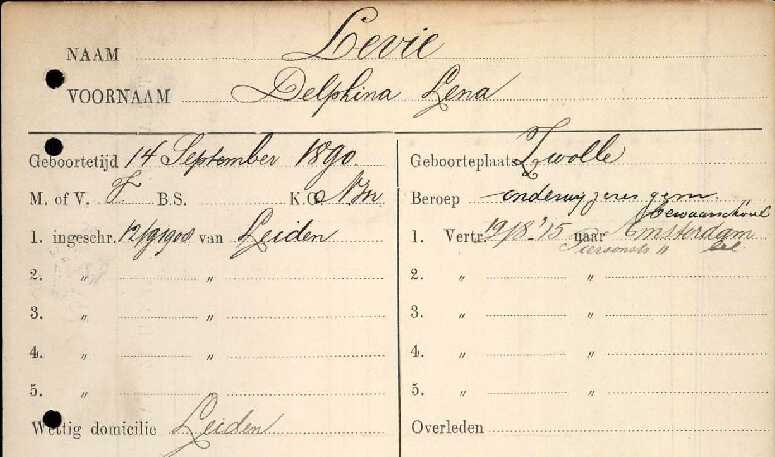 NAAM Levie
VOORNAAM Delphina Lena
Geboortetijd 14 September 1890 Geboorteplaats Zwolle
M. of V. B.S. K.G. N.Isr. Beroep onderwijzeres gem.
bewaarschool
1. ingeschr. 12/9 1908 van Leiden 1. Vertr. 19/8 '15 naar Amsterdam
2. " " 2. " "
3. " " 3. " "
4. " " 4. " "
5. " " 5. " "
Wettig domicilie Leiden Overleden